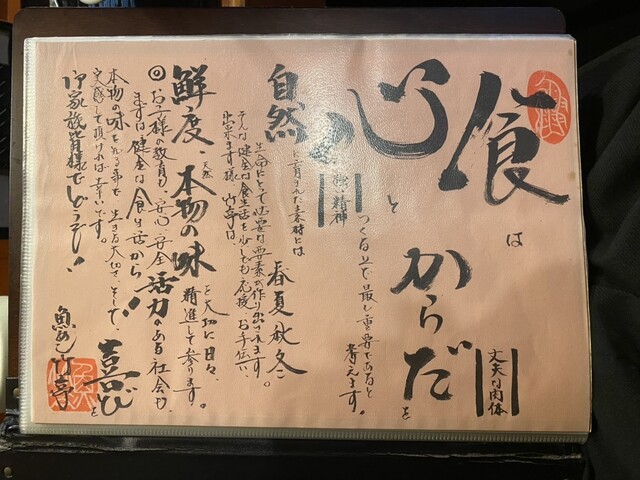 食は
心とからだを
丈夫な肉体
つくる上で最も重要であると考えます。
精神
自然に育まれた素材とは 春夏秋冬
生命にとって必要な要素が作り出されます。
そんな健全な食生活を少しでも応援、お手伝い
出来ます様、竹亭は、
鮮度・天然・本物の味を大切に日々、精進して参ります。
◎お子様の教育も、安心・安全 活力のある社会も、
まずは健全な食生活から!
本物の味を知る事で生きる大切さ、そして、喜びを
実感して頂ければ幸いです。
御家族皆様でどうぞ!
魚めし竹亭